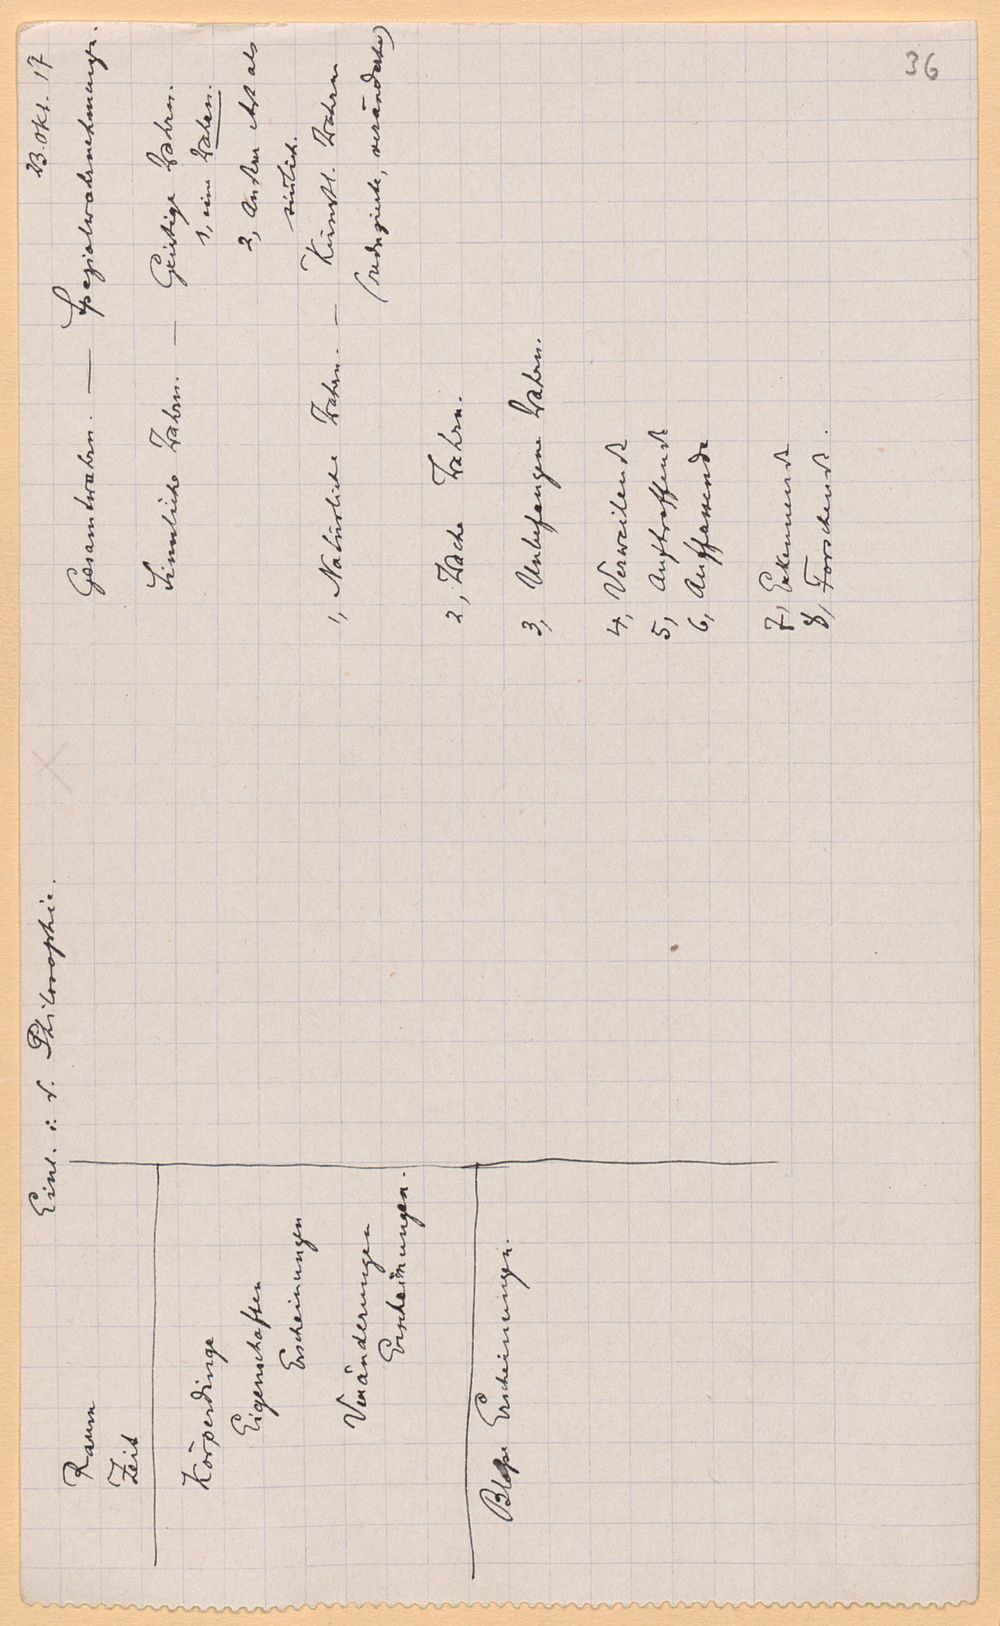 Einl. i. d. Philosophie.
23. Okt. 17
36
Raum
Zeit
Körperdinge
Eigenschaften
Erscheinungen
Veränderungen
Erscheinungen.
Bloße Erscheinungen.
Gesamtwahrn. — Spezialwahrnehmungen.
Sinnliche Wahrn. — Geistige Wahrn.
1, eine Wahrn.
2, Anders als
sinlich.
1, Natürliche Wahrn. — Künstl. Wahrn
(reduzierte, veränderte)
2, Wache Wahrn.
3, Unbefangene Wahrn.
4, Verweilend
5, Auftreffend
6, Auffassende
7, Erkennend
8, Forschend.